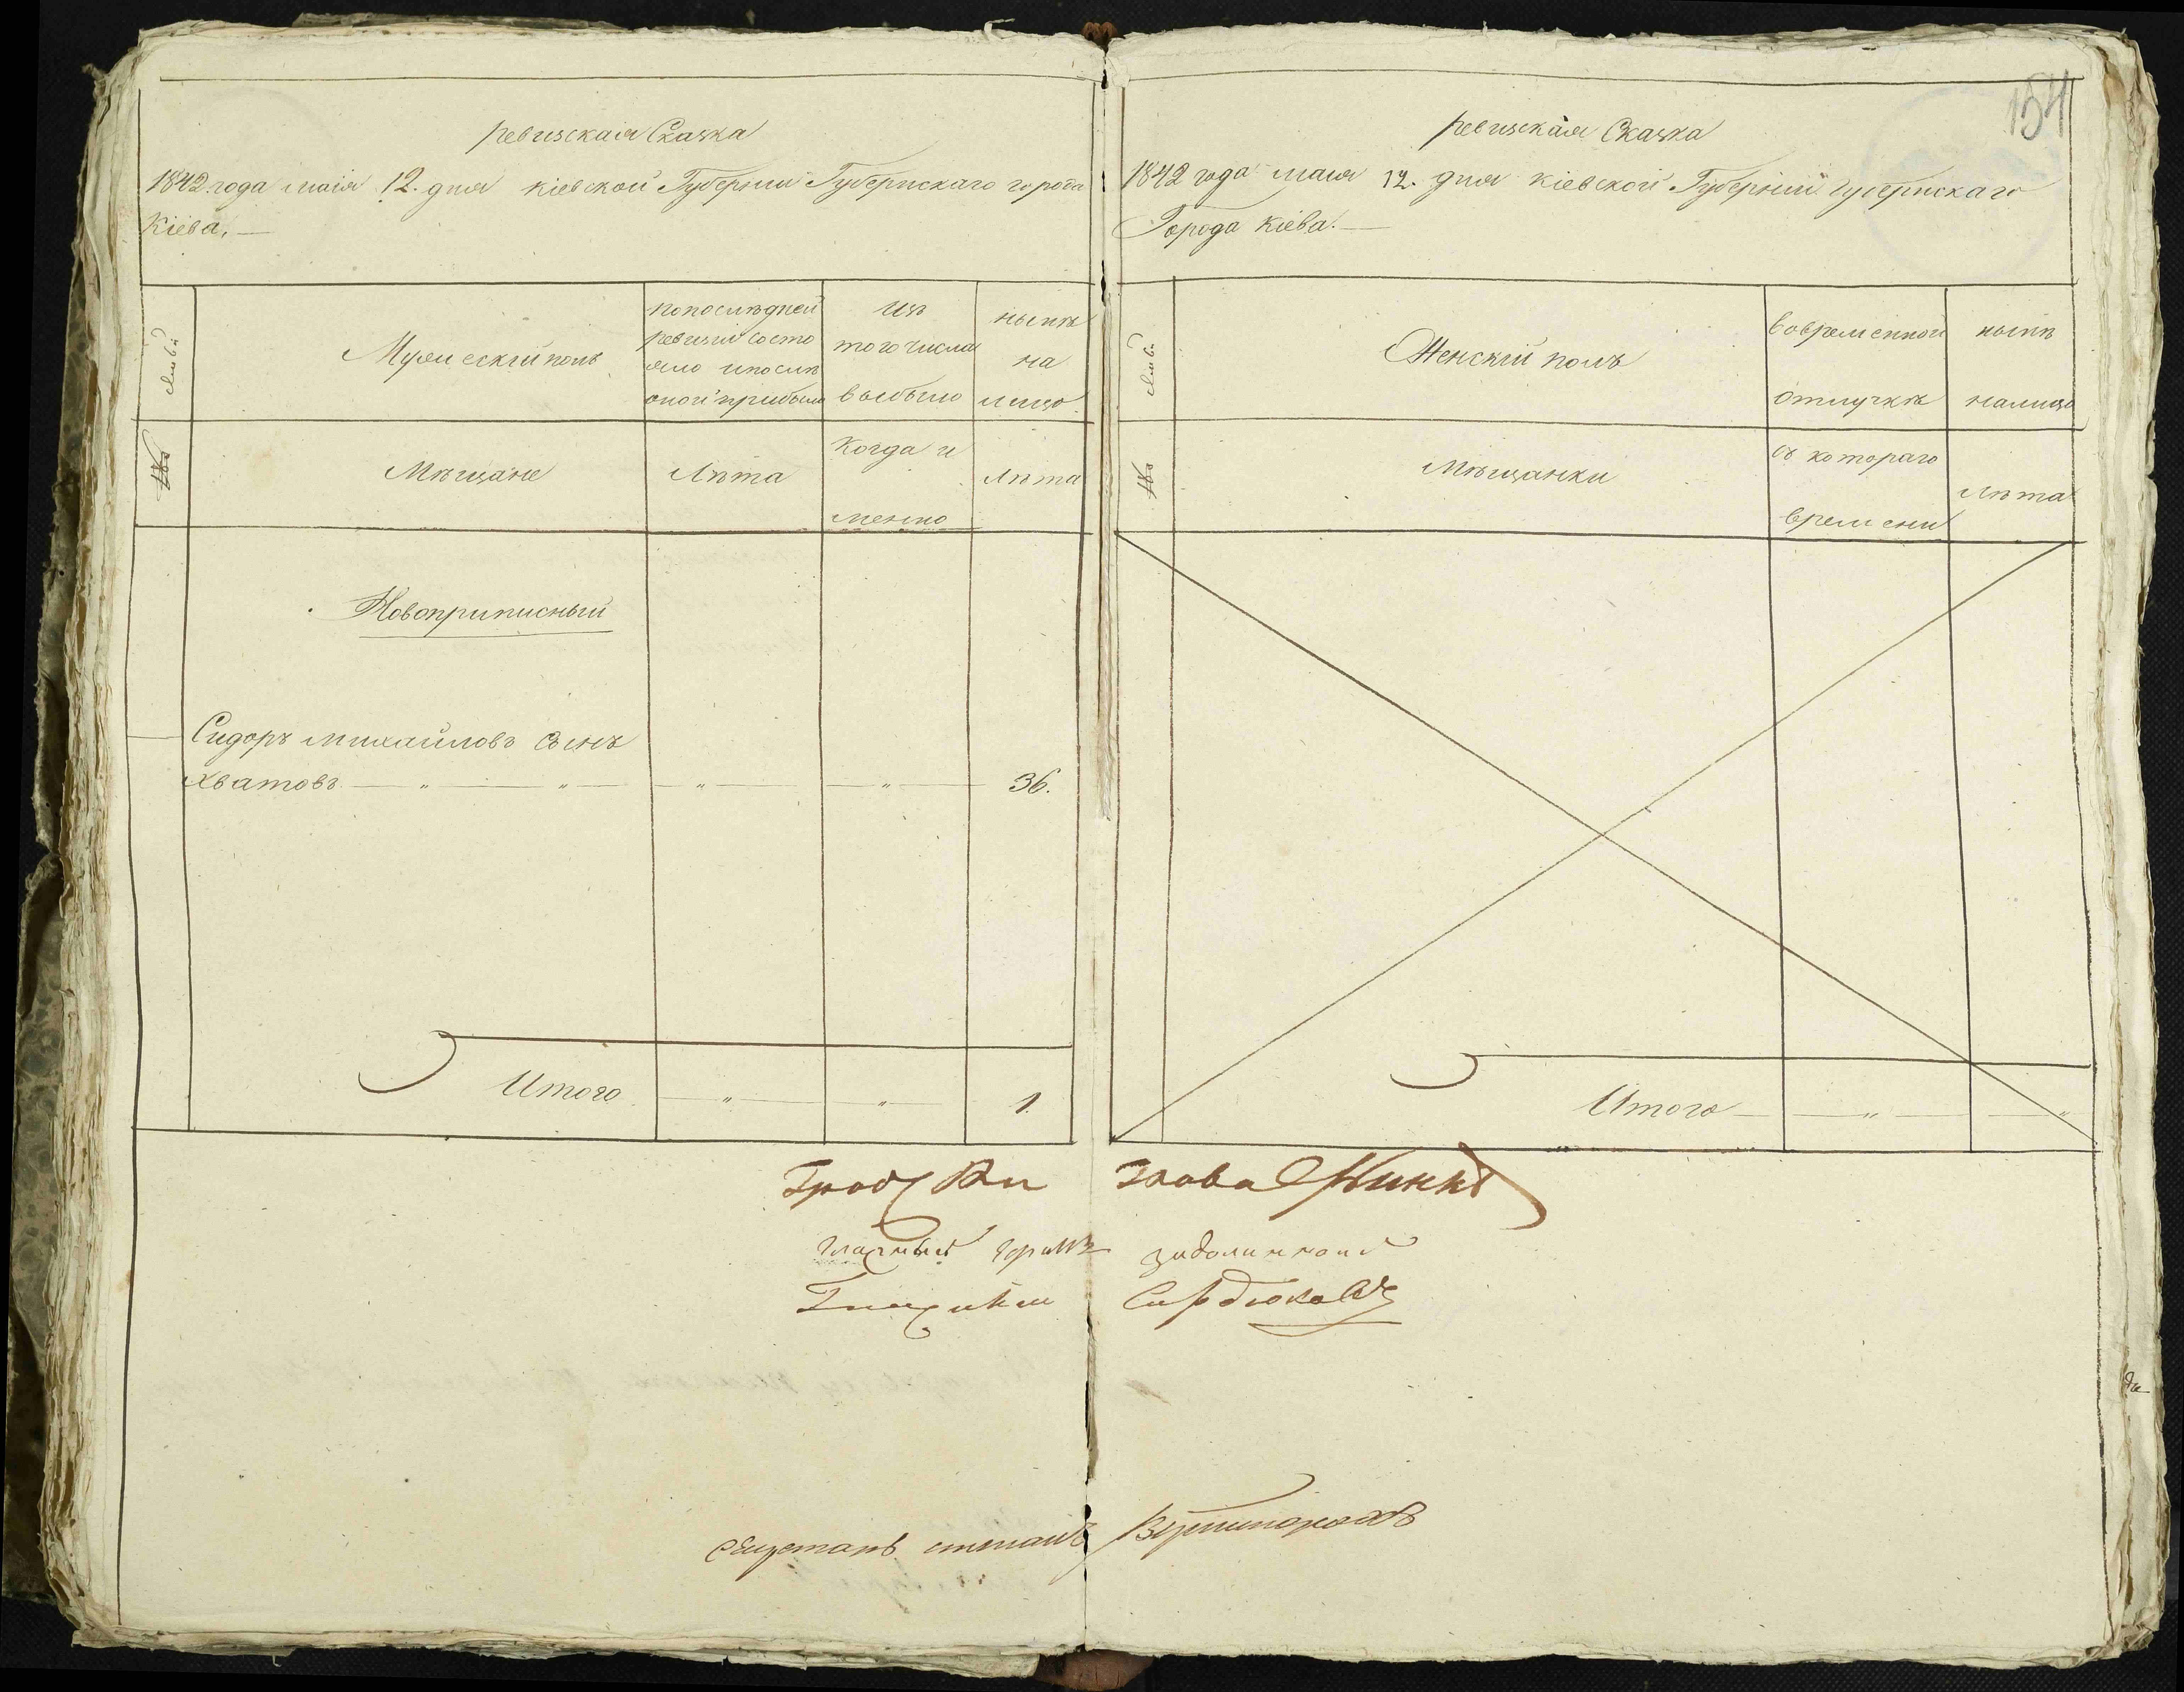 Ревизская Сказка
1842 года маія 12. дня Кіевской Губерніи Губернскаго города
Кіева.
Мужескій полъ
По последней
ревизіи состо
яло и после
оной прибыло
Изъ
того числа
выбыло
Ныне
на
лицо
Мѣщане
Лѣта
Когда и
менно
Лѣта
Новоприписный
Сидоръ Михайловъ Сынъ
Хватовъ — " — " — " — " — 36.
Итого — " — " — 1.
154
Ревизская Сказка
1842 года маия 12. дня Кіевской Губерніи Губернскаго
Города Кіева.
Женскій полъ
Во временной
отлучкѣ
нынѣ
налицо
№
Мѣщанки
съ котораго
времени
Лѣта
Итого — " — "
Град Глава
Гласный
Гласный Сердюковъ